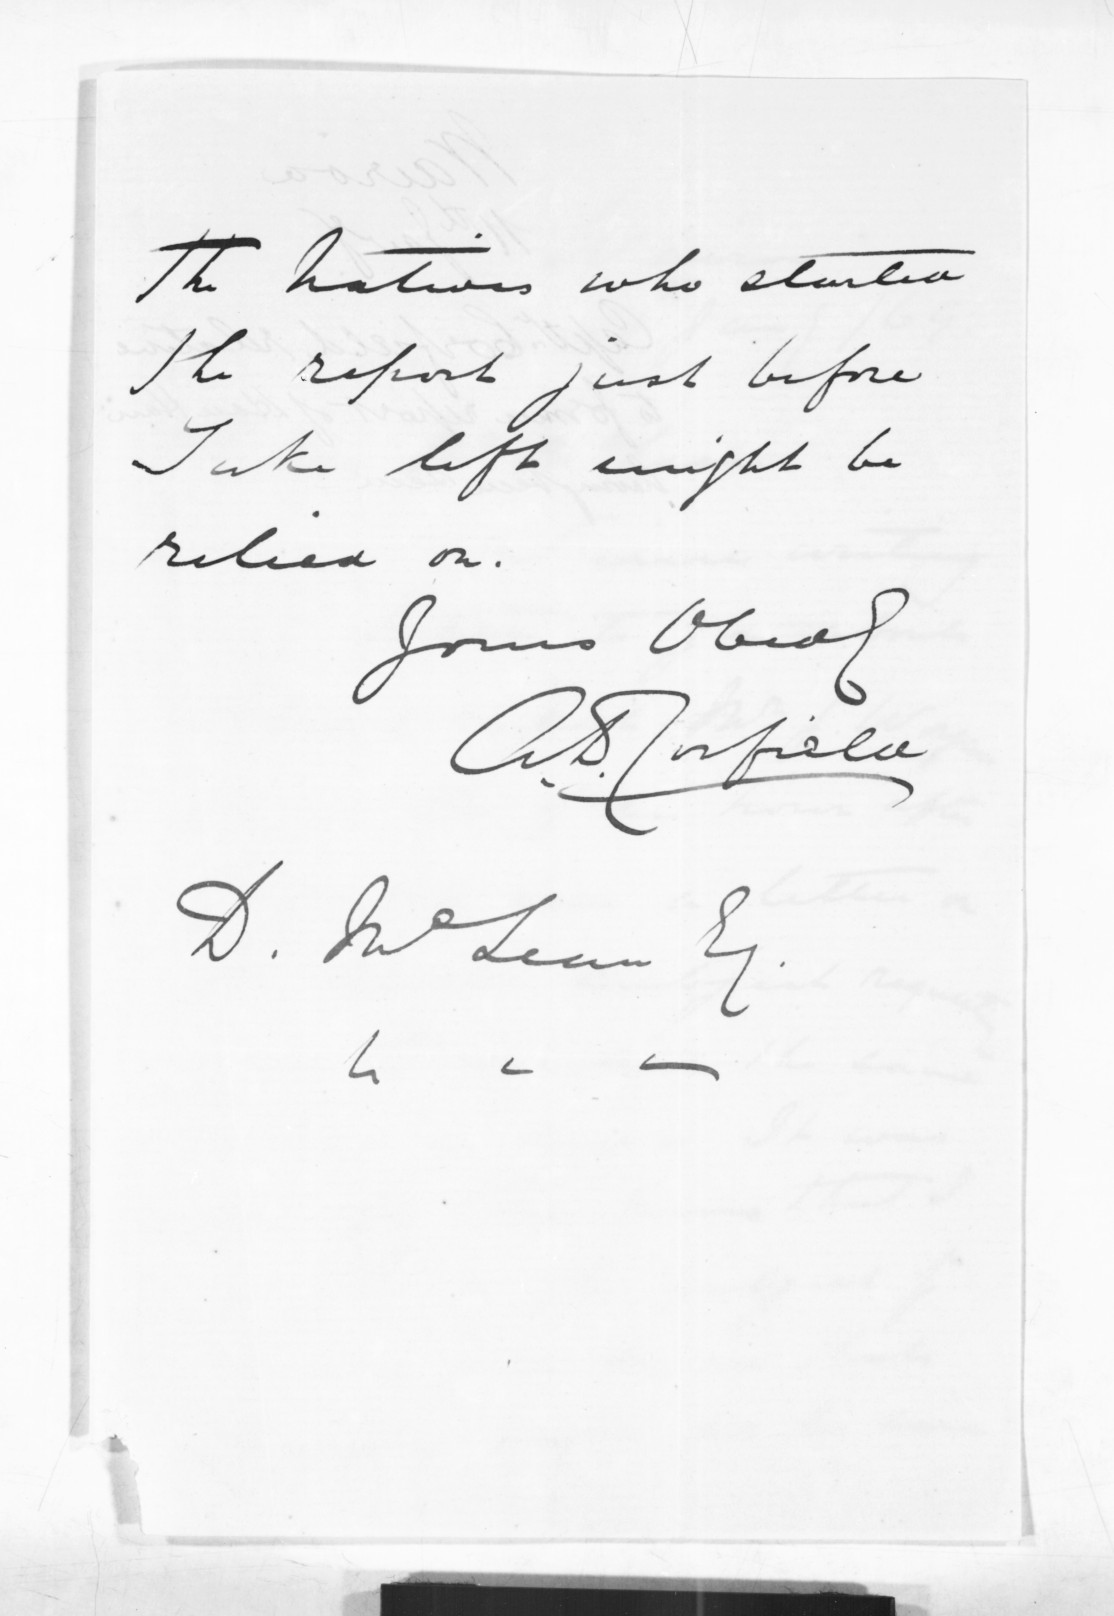 The Natives who started
the report just before
Tuke left might be
relied on.
Yours Obedy
A.D. Corfield
D. McLean Esq.